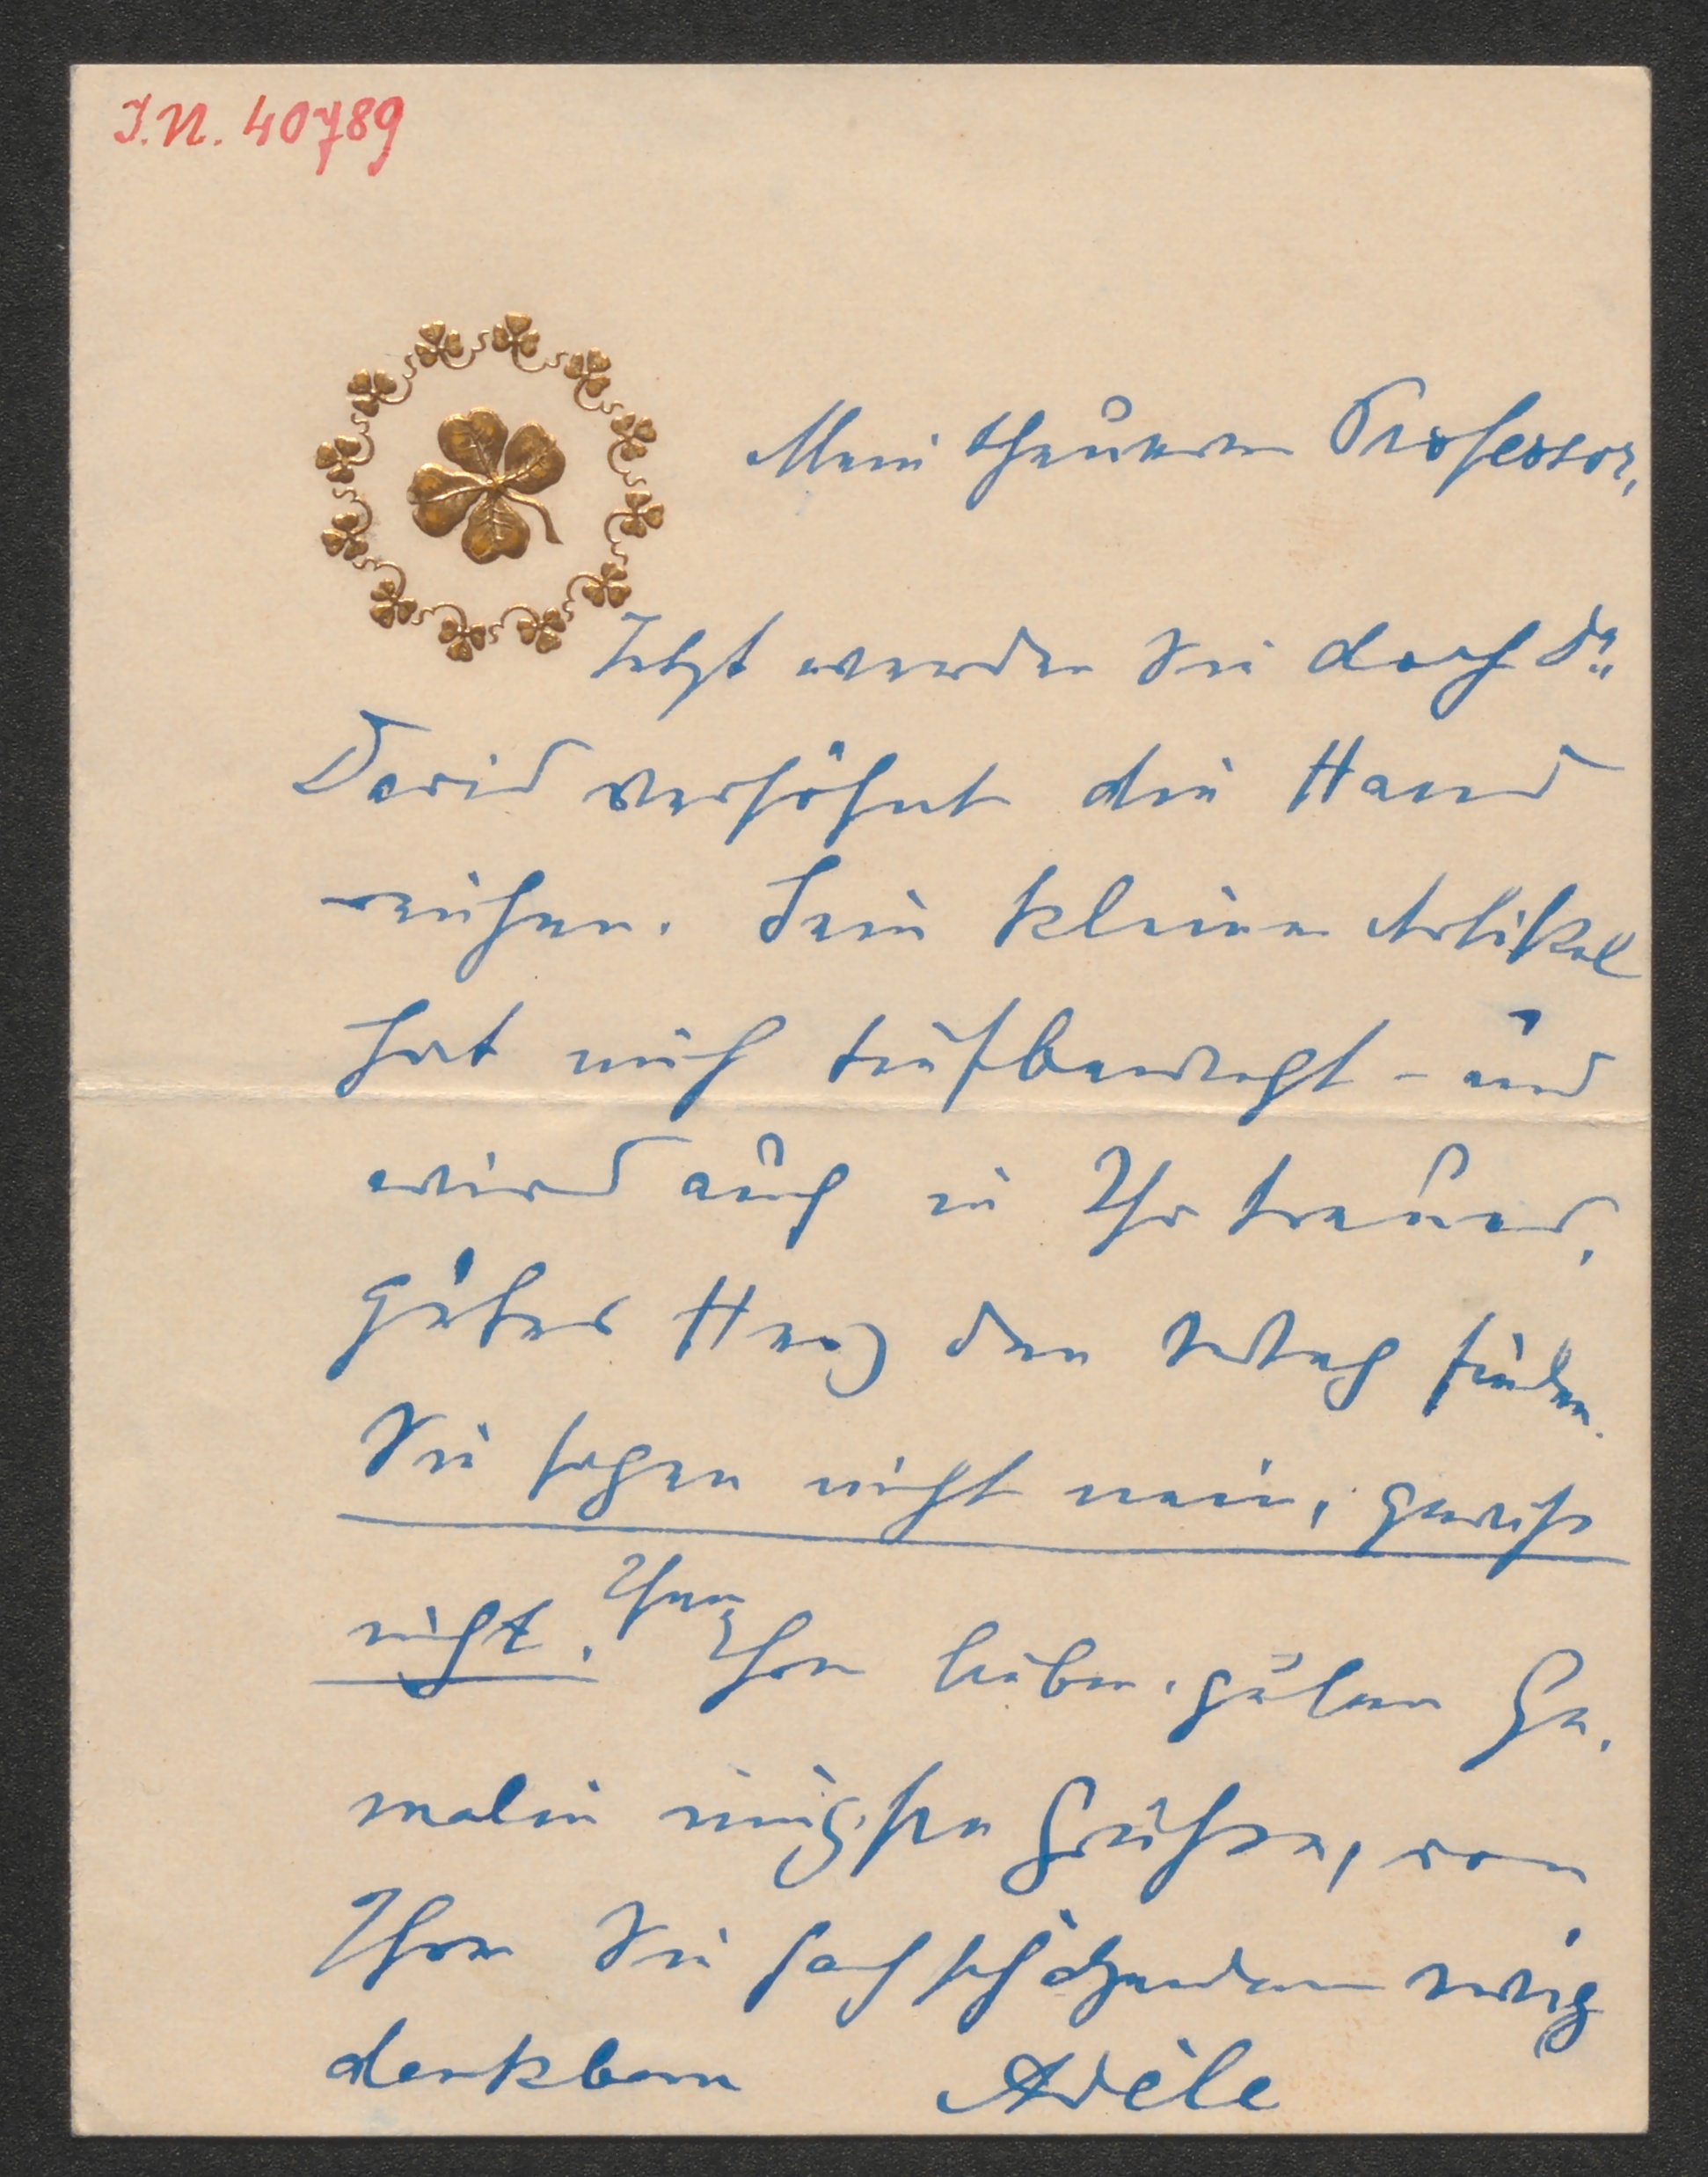 I.N. 40789
Mein theuerer Professor,
Jetzt werden Sie doch Dr.
David versöhnt die Hand
reichen. Sein kleiner Artikel
hat mich tiefbewegt - und
wird auch in Ihr treues,
gutes Herz den Weg finden.
Sie sagen nicht nein, gewiß
nicht. Ihnen
Ihrer lieben, guten Ge-
malin innigste Grüße, von
Ihrer Sie hochschätzenden ewig
dankbaren Adèle